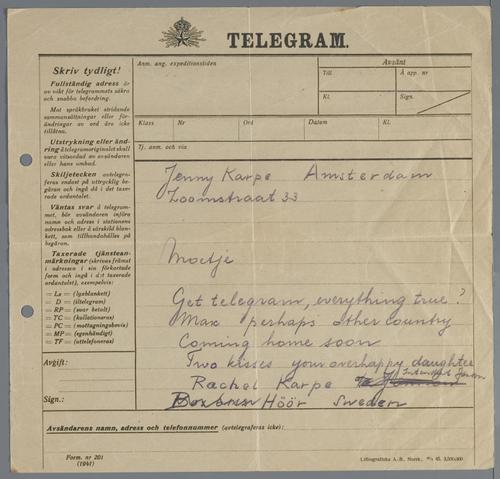 TELEGRAM.
Skriv tydligt!
Fullständig adress är av vikt för telegrammets säkra och snabba befordring.
Mot språkbruket stridande sammansättningar eller förändringar av ord äro icke tillåtna.
Utstrykning eller ändring å telegramoriginalet skall vara vitsordad av avsändaren eller hans ombud.
Skiljetecken avtelegraferas endast på uttrycklig begäran och ingå då i det taxerade ordantalet.
Väntas svar å telegrammet, bör avsändaren införa namn och adress i stationens adressbok eller å särskild blankett, som tillhandahålles på begäran.
Taxerade tjänsteanmärkningar (skrivas främst i adressen i sin förkortade form och ingå i det taxerade ordantalet), exempelvis:
= Lx = (lyxblankett)
= D = (iltelegram)
= RP = (svar betalt)
= TC = (kollationeras)
= PC = (mottagningsbevis)
= MP = (egenhändigt)
= TF = (uttelefoneras)
Avgift:
Sign.:
Anm. ang. expeditionstiden
Avsänt
Till
Å app. nr
Kl.
Sign.
Klass
Nr
Ord
Datum
Kl.
Tj. anm. och via
Jenny Karpe Amsterdam
Zoomstraat 33
Moetje
Get telegram, everything true?
Max perhaps other country
Coming home soon
Two kisses your overhappy daughter
Rachel Karpe
Höör Sweden
Avsändarens namn, adress och telefonnummer (avtelegraferas icke):
Form. nr 201
(1941)
Litografiska A.-B., Norrk.
45. 3,500,000